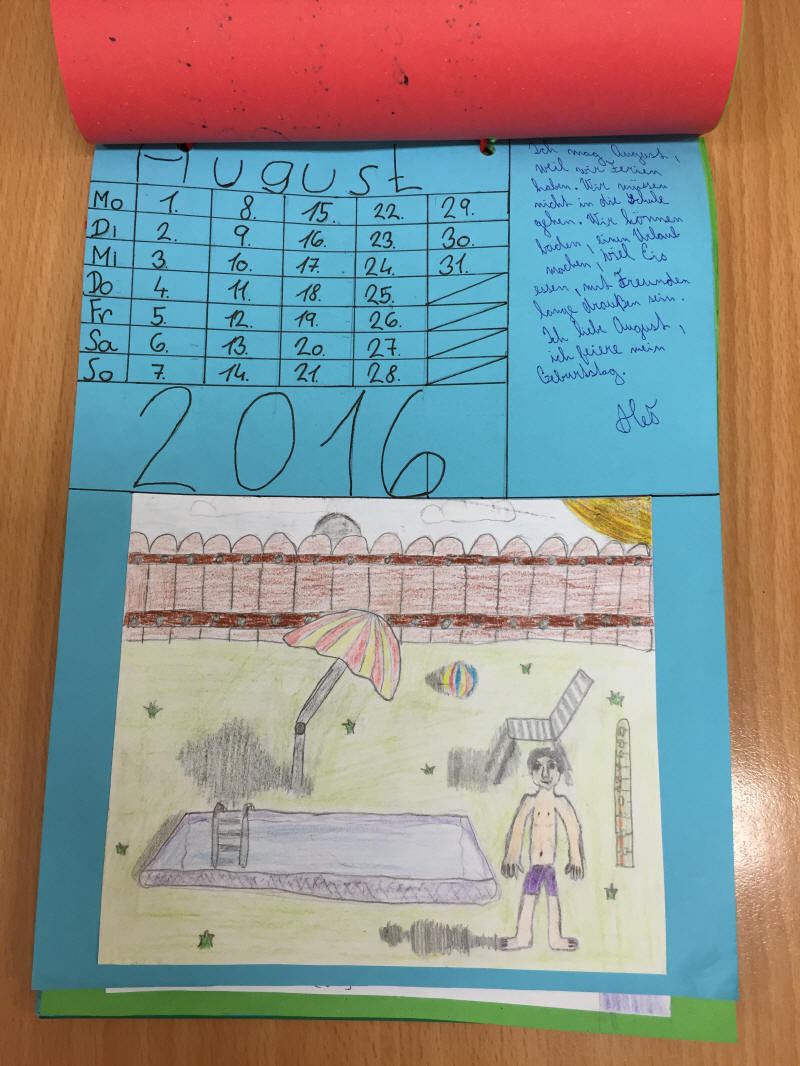 August
Mo 1. 8. 15. 22. 29.
Di 2. 9. 16. 23. 30.
Mi 3. 10. 17. 24. 31.
Do 4. 11. 18. 25.
Fr 5. 12. 19. 26.
Sa 6. 13. 20. 27.
So 7. 14. 21. 28.
2016
Ich mag August,
weil wir Ferien
haben. Wir müssen
nicht in die Schule
gehen. Wir können
baden, einen Urlaub
machen, viel Eis
essen, mit Freunden
lange draußen sein.
Ich liebe August,
ich feiere mein
Geburtstag.